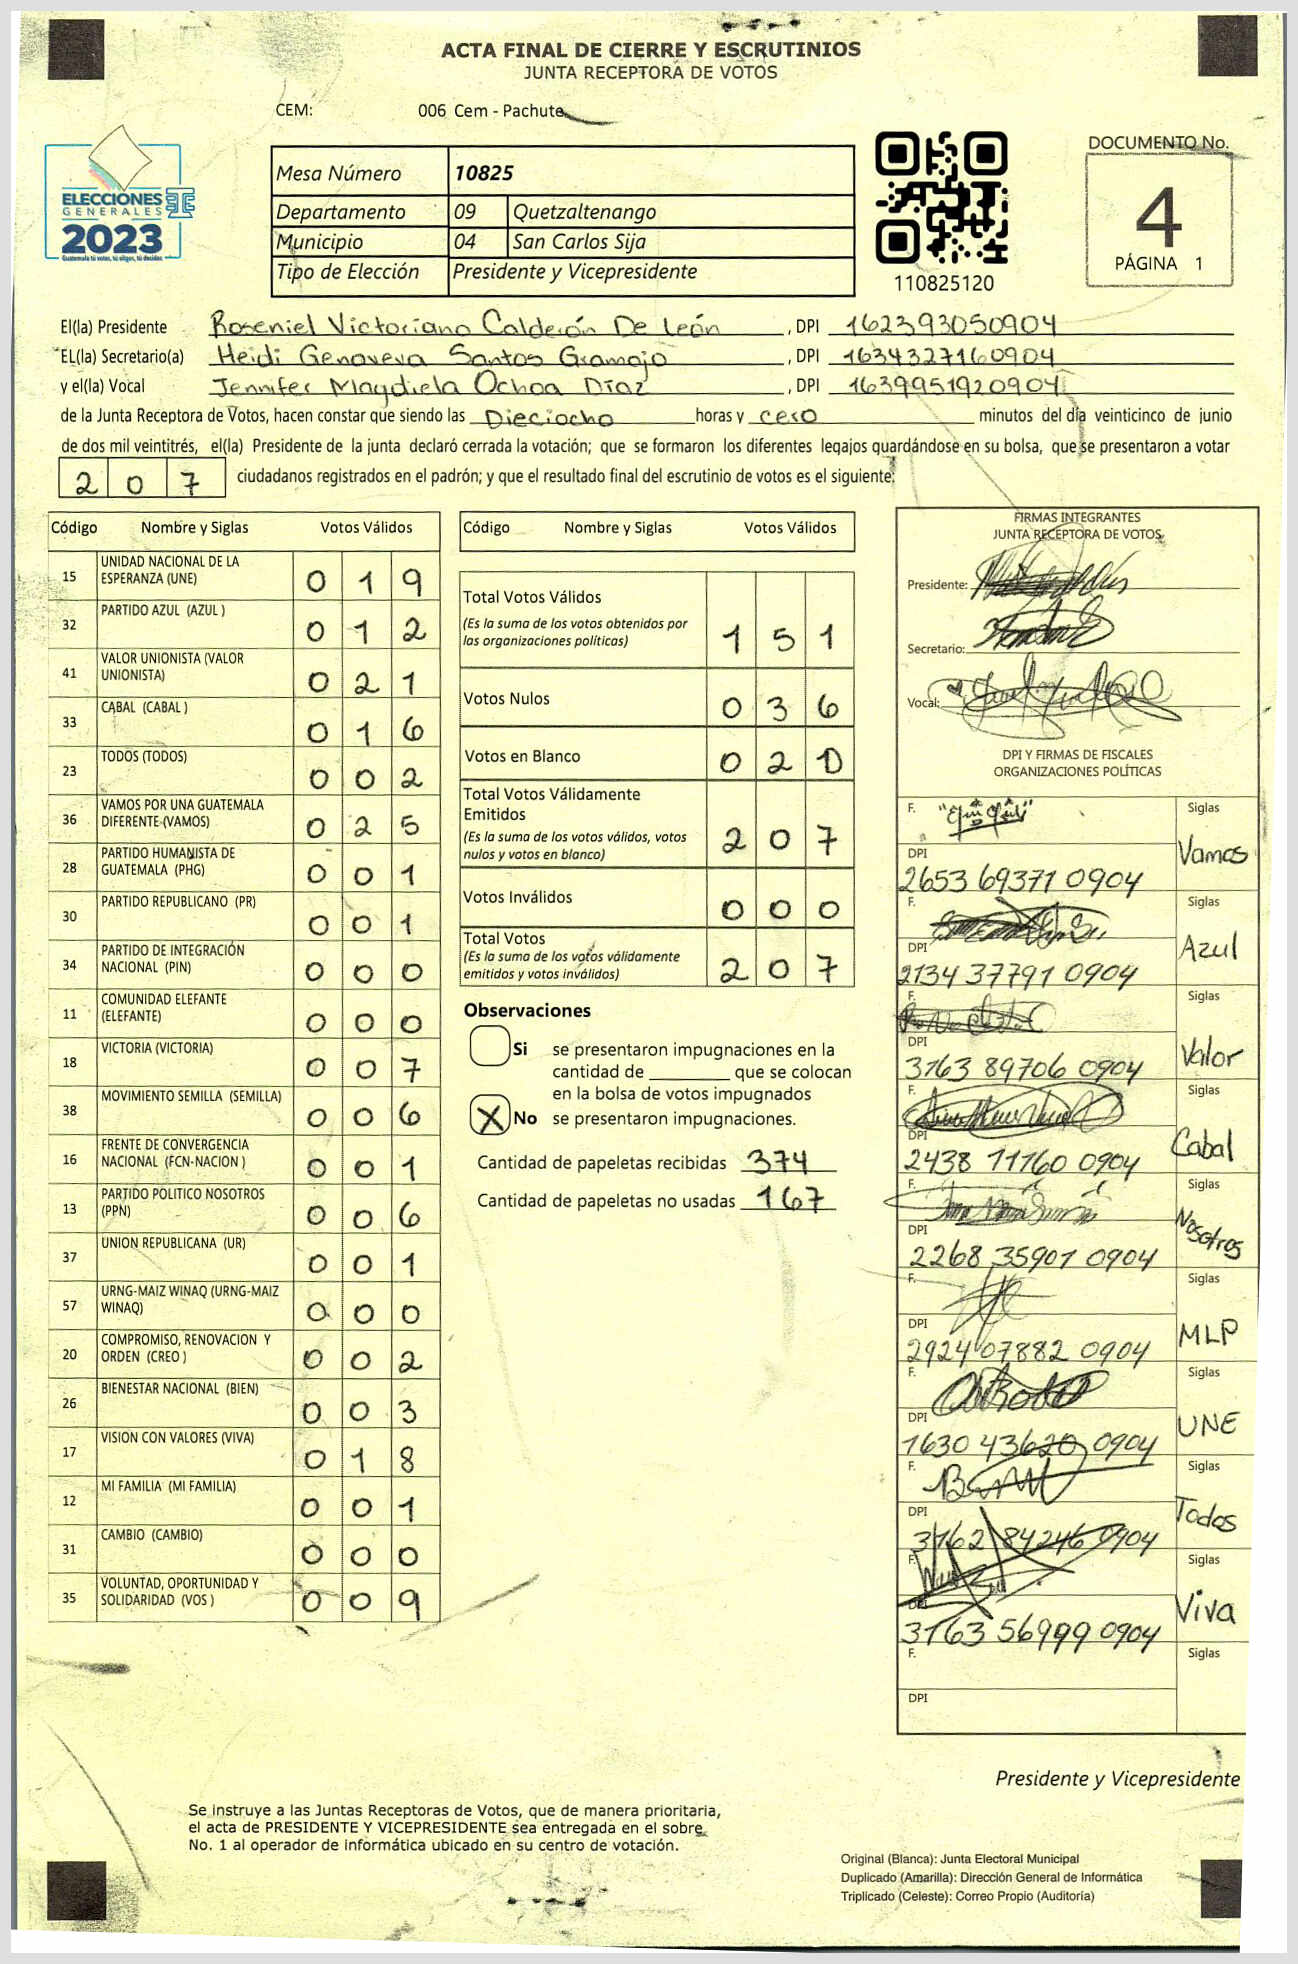 ACTA FINAL DE CIERRE Y ESCRUTINIOS
JUNTA RECEPTORA DE VOTOS
CEM: 006 Cem - Pachute
ELECCIONES
GENERALES
2023
Guatemala tú votas, tú eliges, tú decides
Mesa Número 10825
Departamento 09 Quetzaltenango
Municipio 04 San Carlos Sija
Tipo de Elección Presidente y Vicepresidente
110825120
DOCUMENTO No.
4
PÁGINA 1
El(la) Presidente Roseniel Victoriano Calderón De león, DPI 162393050904
EL(la) Secretario(a) Heidi Genoveva Santos Gramajo, DPI 1634327160904
y el(la) Vocal Jennifer Maydiela Ochoa Díaz, DPI 1639951920904
de la Junta Receptora de Votos, hacen constar que siendo las Dieciocho horas y cero minutos del día veinticinco de junio
de dos mil veintitrés, el(la) Presidente de la junta declaró cerrada la votación; que se formaron los diferentes legajos guardándose en su bolsa, que se presentaron a votar
207 ciudadanos registrados en el padrón; y que el resultado final del escrutinio de votos es el siguiente:
Código Nombre y Siglas Votos Válidos
15 UNIDAD NACIONAL DE LA ESPERANZA (UNE) 0 1 9
32 PARTIDO AZUL (AZUL ) 0 1 2
41 VALOR UNIONISTA (VALOR UNIONISTA) 0 2 1
33 CABAL (CABAL ) 0 1 6
23 TODOS (TODOS) 0 0 2
36 VAMOS POR UNA GUATEMALA DIFERENTE (VAMOS) 0 2 5
28 PARTIDO HUMANISTA DE GUATEMALA (PHG) 0 0 1
30 PARTIDO REPUBLICANO (PR) 0 0 1
34 PARTIDO DE INTEGRACIÓN NACIONAL (PIN) 0 0 0
11 COMUNIDAD ELEFANTE (ELEFANTE) 0 0 0
18 VICTORIA (VICTORIA) 0 0 7
38 MOVIMIENTO SEMILLA (SEMILLA) 0 0 6
16 FRENTE DE CONVERGENCIA NACIONAL (FCN-NACION ) 0 0 1
13 PARTIDO POLITICO NOSOTROS (PPN) 0 0 6
37 UNION REPUBLICANA (UR) 0 0 1
57 URNG-MAIZ WINAQ (URNG-MAIZ WINAQ) 0 0 0
20 COMPROMISO, RENOVACION Y ORDEN (CREO ) 0 0 2
26 BIENESTAR NACIONAL (BIEN) 0 0 3
17 VISION CON VALORES (VIVA) 0 1 8
12 MI FAMILIA (MI FAMILIA) 0 0 1
31 CAMBIO (CAMBIO) 0 0 0
35 VOLUNTAD, OPORTUNIDAD Y SOLIDARIDAD (VOS ) 0 0 9
Código Nombre y Siglas Votos Válidos
Total Votos Válidos
(Es la suma de los votos obtenidos por
las organizaciones políticas) 1 5 1
Votos Nulos 0 3 6
Votos en Blanco 0 2 0
Total Votos Válidamente
Emitidos
(Es la suma de los votos válidos, votos
nulos y votos en blanco) 2 0 7
Votos Inválidos 0 0 0
Total Votos
(Es la suma de los votos válidamente
emitidos y votos inválidos) 2 0 7
Observaciones
Si se presentaron impugnaciones en la
cantidad de ________ que se colocan
en la bolsa de votos impugnados
X No se presentaron impugnaciones.
Cantidad de papeletas recibidas 374
Cantidad de papeletas no usadas 167
FIRMAS INTEGRANTES
JUNTA RECEPTORA DE VOTOS
Presidente:
Secretario:
Vocal:
DPI Y FIRMAS DE FISCALES
ORGANIZACIONES POLÍTICAS
F. Siglas
DPI Vamos
2653 69371 0904
F. Siglas
DPI Azul
2134 37791 0904
F. Siglas
DPI Valor
3163 89706 0904
F. Siglas
DPI Cabal
2438 11760 0904
F. Siglas
DPI Nosotros
2268 35901 0904
F. Siglas
DPI MLP
2924 07882 0904
F. Siglas
DPI UNE
1630 43620 0904
F. Siglas
DPI Todos
3162 84246 0904
F. Siglas
DPI Viva
3163 56999 0904
F. Siglas
DPI
Presidente y Vicepresidente
Se instruye a las Juntas Receptoras de Votos, que de manera prioritaria,
el acta de PRESIDENTE Y VICEPRESIDENTE sea entregada en el sobre
No. 1 al operador de informática ubicado en su centro de votación.
Original (Blanca): Junta Electoral Municipal
Duplicado (Amarilla): Dirección General de Informática
Triplicado (Celeste): Correo Propio (Auditoría)